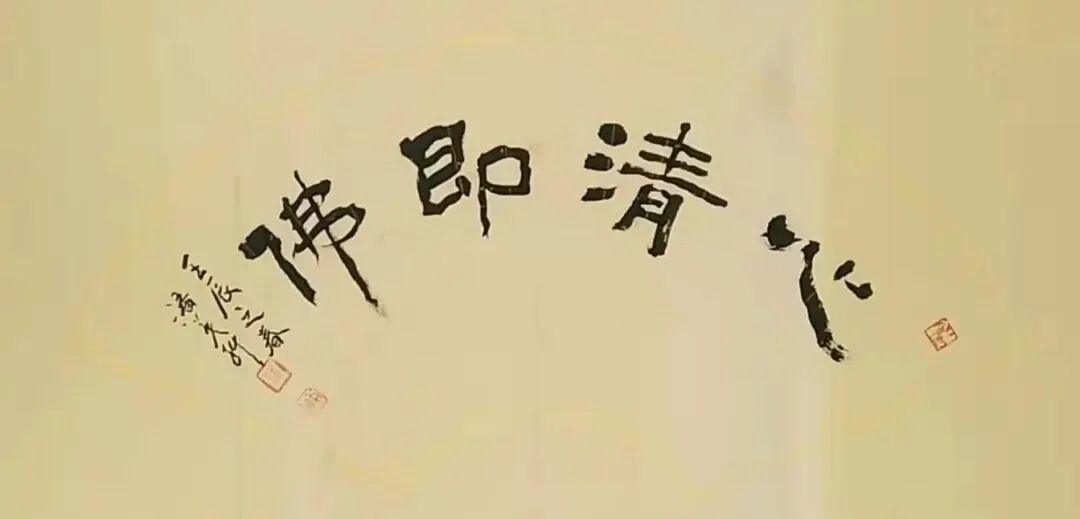 心清即佛
壬辰之春